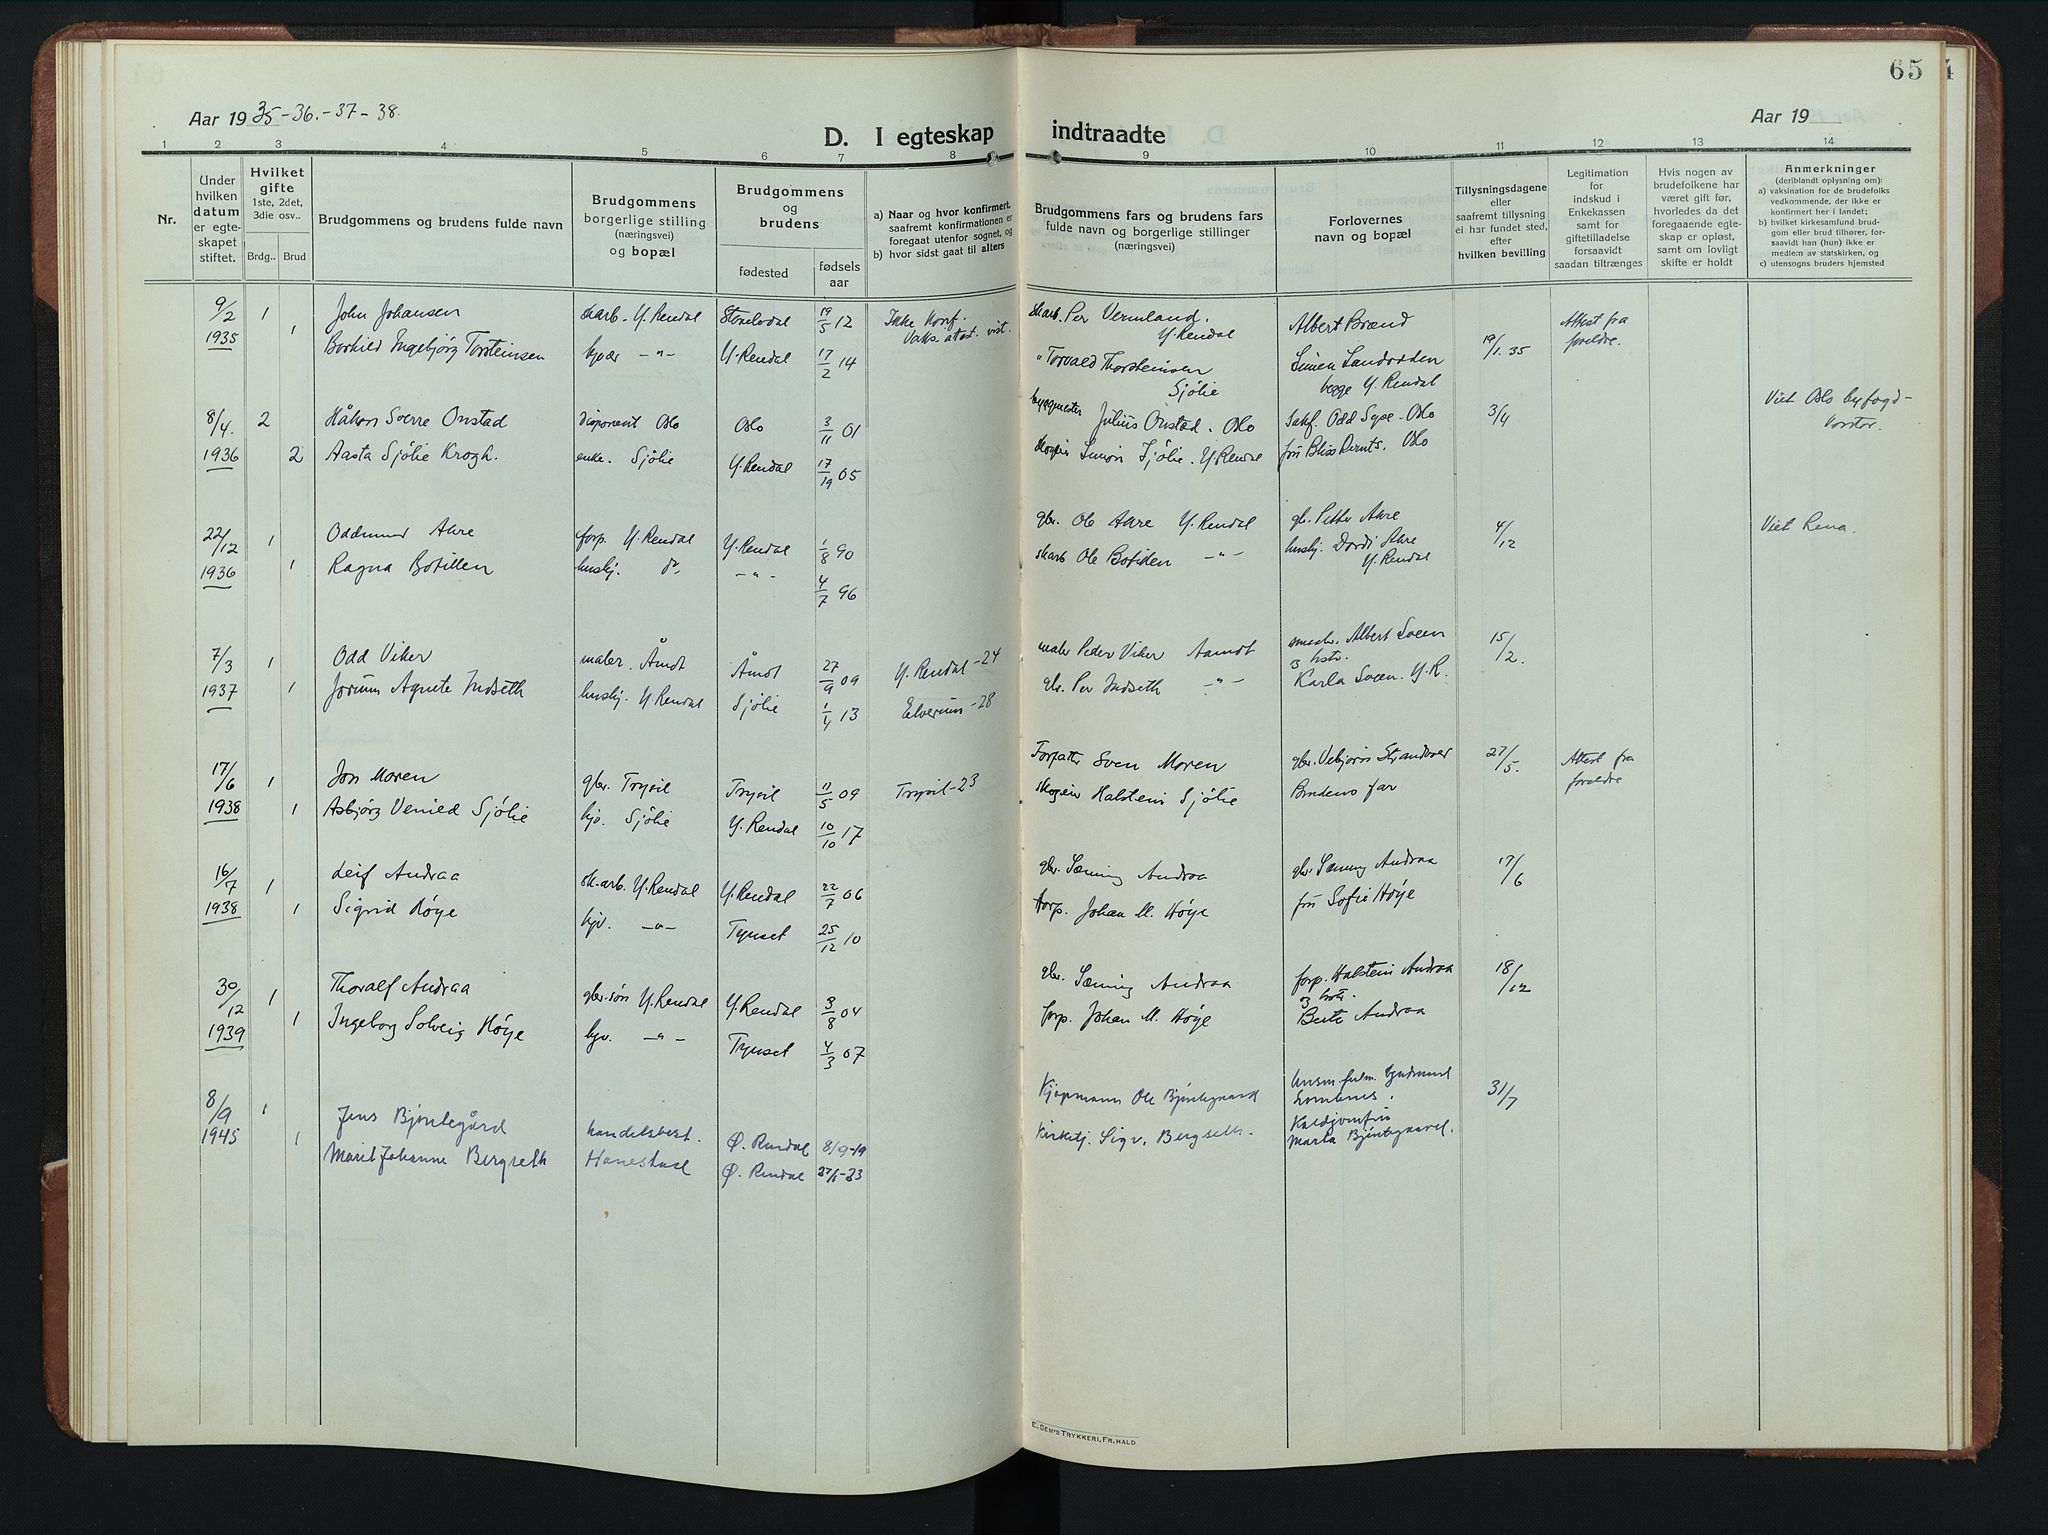 65
Aar 1935-36.-37-38.
Aar 19
D. I egteskap indtraadte
1 2 3 4 5 6 7 8 9 10 11 12 13 14
Nr.
Under
hvilken
datum
er egte-
skapet
stiftet.
Hvilket
gifte
1ste, 2det,
3die osv..
Brdg.. Brud
Brudgommens og brudens fulde navn
Brudgommens
borgerlige stilling
(næringsvei)
og bopæl
Brudgommens
og
brudens
fødested
fødsels
aar
a) Naar og hvor konfirmert,
saafremt konfirmationen er
foregaat utenfor sognet, og
b) hvor sidst gaat til alters
Brudgommens fars og brudens fars
fulde navn og borgerlige stillinger
(næringsvei)
Forlovernes
navn og bopæl
Tillysningsdagene
eller
saafremt tillysning
ei har fundet sted,
efter
hvilken bevilling
Legitimation
for
indskud i
Enkekassen
samt for
giftetilladelse
forsaavidt
saadan tiltrænges
Hvis nogen av
brudefolkene har
været gift før,
hvorledes da det
foregaaende egte-
skap er opløst,
samt om lovligt
skifte er holdt
Anmerkninger
(deriblandt oplysning om):
a) vaksination for de brudefolks
vedkommende, der ikke er
konfirmert her i landet;
b) hvilket kirkesamfund brud-
gom eller brud tilhører, for-
saavidt han (hun) ikke er
medlem av statskirken, og
c) utensogns bruders hjemsted
9/2 1 John Johansen skarb. Y. Rendal Storelvdal 19/5 12 Ikke konf. skarb. Per Vermland. Albert Brænd Attest fra
1935 1 Borhild Ingebjørg Torsteinsen Y. Rendal 17/2 14 Vaks. attest. vist. Y. Rendal 19/1. 35 foreldre.
" Torvald Thorsteinsen Simen Landodden
Sjølie begge Y. Rendal
8/4. 2 Håkon Sverre Onstad disponent Oslo Oslo 3/11 01 Julius Onstad. Oslo Odd Sype - Oslo 3/4 Viet Oslo byfogd-
1936 2 Aasta Sjølie Krogh. enke. Sjølie Y. Rendal 17/19 05 Simon Sjølie. Y. Rendal Oslo
22/12 1 Oddmund Akre forp. Y. Rendal Y. Rendal 1/8 90 gbr. Ole Akre Y. Rendal gbr. Petter Akre 4/12 Viet Rena.
1936 1 Ragna Botillen husbj. do - " - 4/7 96 skarb Ole Botillen - " - husbj. Dordi Akre
Y. Rendal
7/3 1 Odd Viker maler. Åmot Åmot 27/9 09 Y. Rendal -24 maler Peder Viker Aamot Albert Sveen 15/2.
og hstr.
1937 1 Jorunn Agnete Indseth husbj. Y. Rendal Sjølie 1/4 13 Elverum -28 gbr. Per Indseth - " - Karla Sveen. Y. R.
17/6 1 Jon Moren gbr. Trysil Trysil 11/5 09 Trysil -23 Forfatter Sven Moren gbr. Vebjørn 27/5. Attest fra
1938 1 Asbjørg Venied Sjølie hjv. Sjølie Y. Rendal 10/10 17 skogeier Halstein Sjølie Brudens far foreldre
16/7 1 Leif Andraa sk.arb. Y. Rendal Y. Rendal 22/7 06 gbr. Sæming Andraa gbr. Sæming Andraa 17/6
1938 1 Sigrid Høye hjv. - " - Tynset 25/12 10 forp. Johan M. Høye fru Sofie Høye
30/12 1 Thoralf Andraa gbr. søn Y. Rendal Y. Rendal 3/8 04 gbr. Sæming Andraa forp. Halstein Andraa 18/12
og hstr.
1939 1 Ingeborg Solveig Høye hjv. - " - Tynset 4/3 07 forp. Johan M. Høye Berte Andraa
8/9 1 Jens Bjøntegård handelsbest. Ø. Rendal 8/9-19 Kjøpmann Ole Bjøntegaard 31/7
1945 1 Marit Johanne Bergseth Hanestad Ø. Rendal 27/1-23 Kirketj. Sigv. Bergseth. Marta Bjøntegaard.
E. SEM'S TRYKKERI, FR.HALD